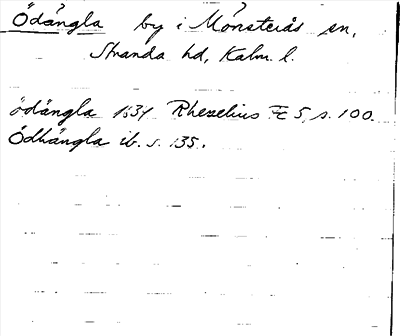 Ödängla by i Mönsterås sn,
Stranda hd, Kalm. l.
ödängla 1634 Rhezelius Fc 5, s. 100.
Ödhängla ib. s. 135.